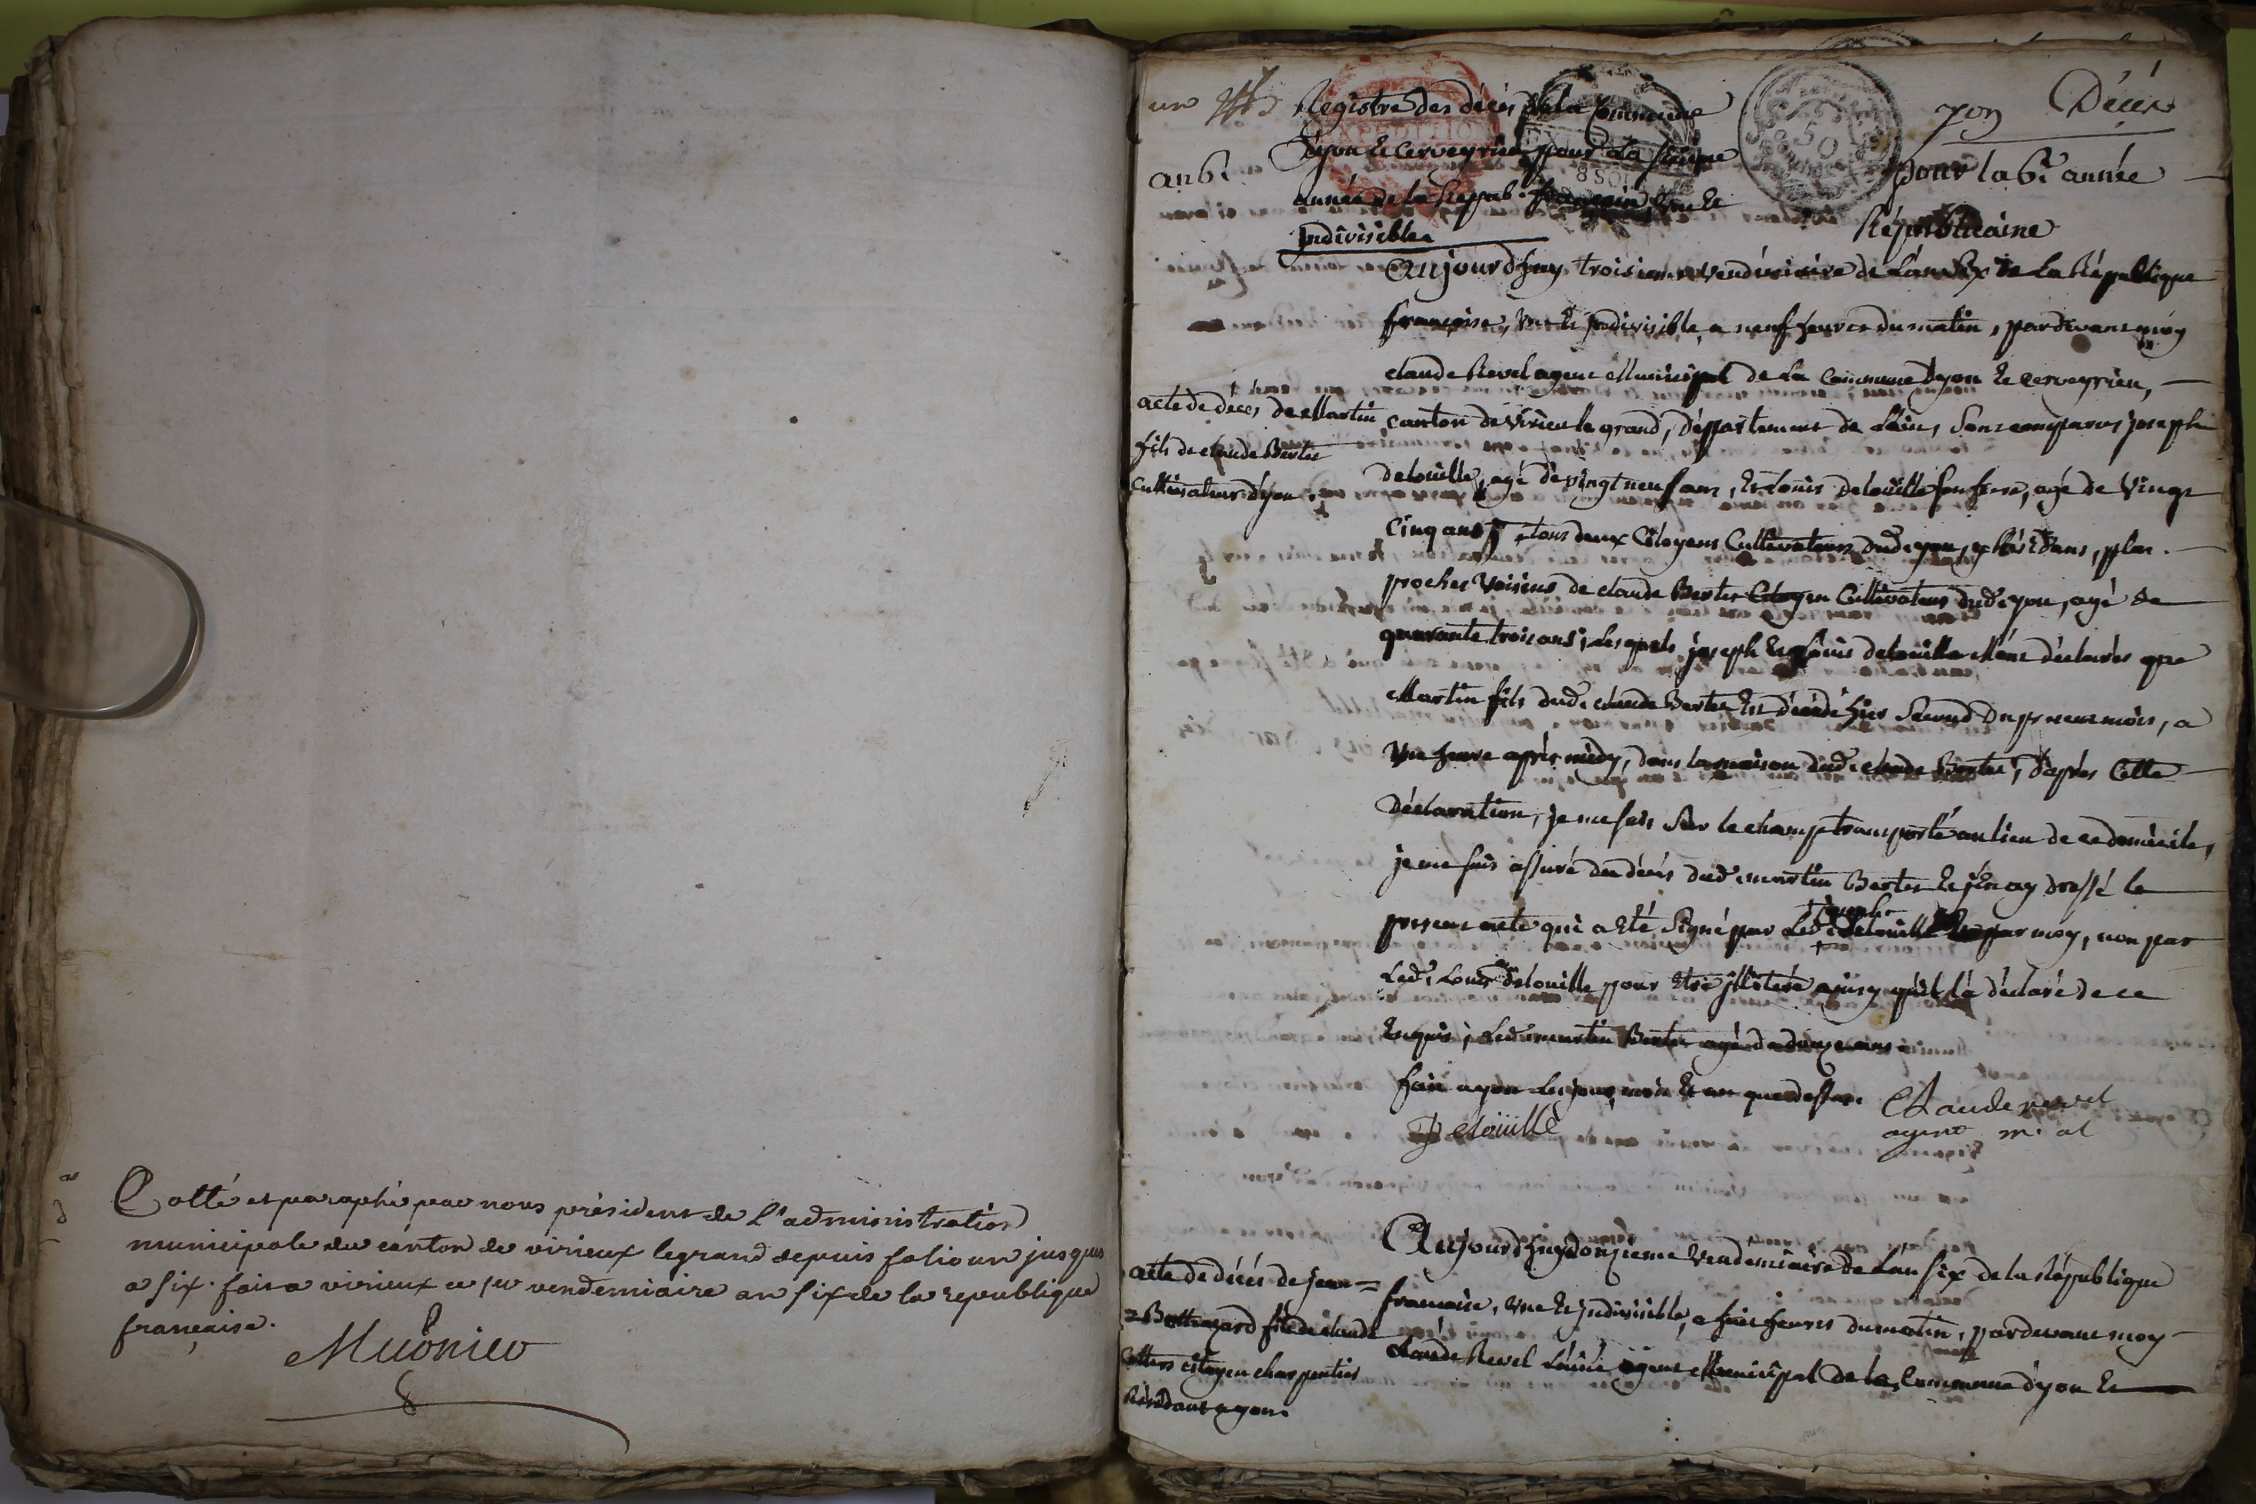 Cotté et paraphé par nous président de l'administration
municipale du canton de virieux legrand depuis folio un jusques
a six. fait a virieux ce 1er vendemiaire an six de la republique
française.
un
an 6e
Registre des décès de la Commune
d'yon et cerveyrieu pour la sixième
année de la Repub. françoise une et
indivisible.
yon Décès
pour la 6e année
Républicaine
50
Aujourd'huy troisieme vendémiaire de L'an six de la République
françoise, une et jndivisible, a neuf heures du matin, pardevant moy
claude Revel agent Municipal de la Commune d'yon et cerveyrieu,
acte de décès de Martin
fils de claude Berlet
cultivateur d'yon.
canton de virieu le grand, département de L'ain, sont comparus joseph
delouille, agé de vingt neuf ans, et Louis delouille son frere, agé de vingt
cinq ans, tous deux Citoyens Cultivateurs dud. yon, y Résidans, plus
proches voisins de claude Berlet Citoyen Cultivateur dud. yon, agé de
quarante trois ans; lesquels joseph et Louis delouille m'ont déclarés que
Martin fils dud. claude Berlet est décédé hier second du present mois, a
une heure après midy, dans la maison dud. claude Berlet, d'après Cette
Déclaration, je me suis sur le champ transporté au lieu de ce domicile,
je me suis assuré du décès dud. martin Berlet et j'en ay dressé le
joseph
present acte qui a eté signé par led. delouille et par moy, non par
Led. Louis delouille pour etre jllitéré ainsy qu'il l'a déclaré de ce
Enquis; led. martin Berlet agé de douze ans.
fait a yon les jour, mois et an que dessus.
Delouille
Claude revel
agent m. al
acte de décès de jean =
fils de claude
citoyen charpentier
Résidant a yon.
Aujourd'huy donzieme vendemiaire de L'an six de la République
francoise, une et jndivisible, a huit heures du matin, pardevant moy
claude Revel L'ainé agent Municipal de la Commune d'yon et